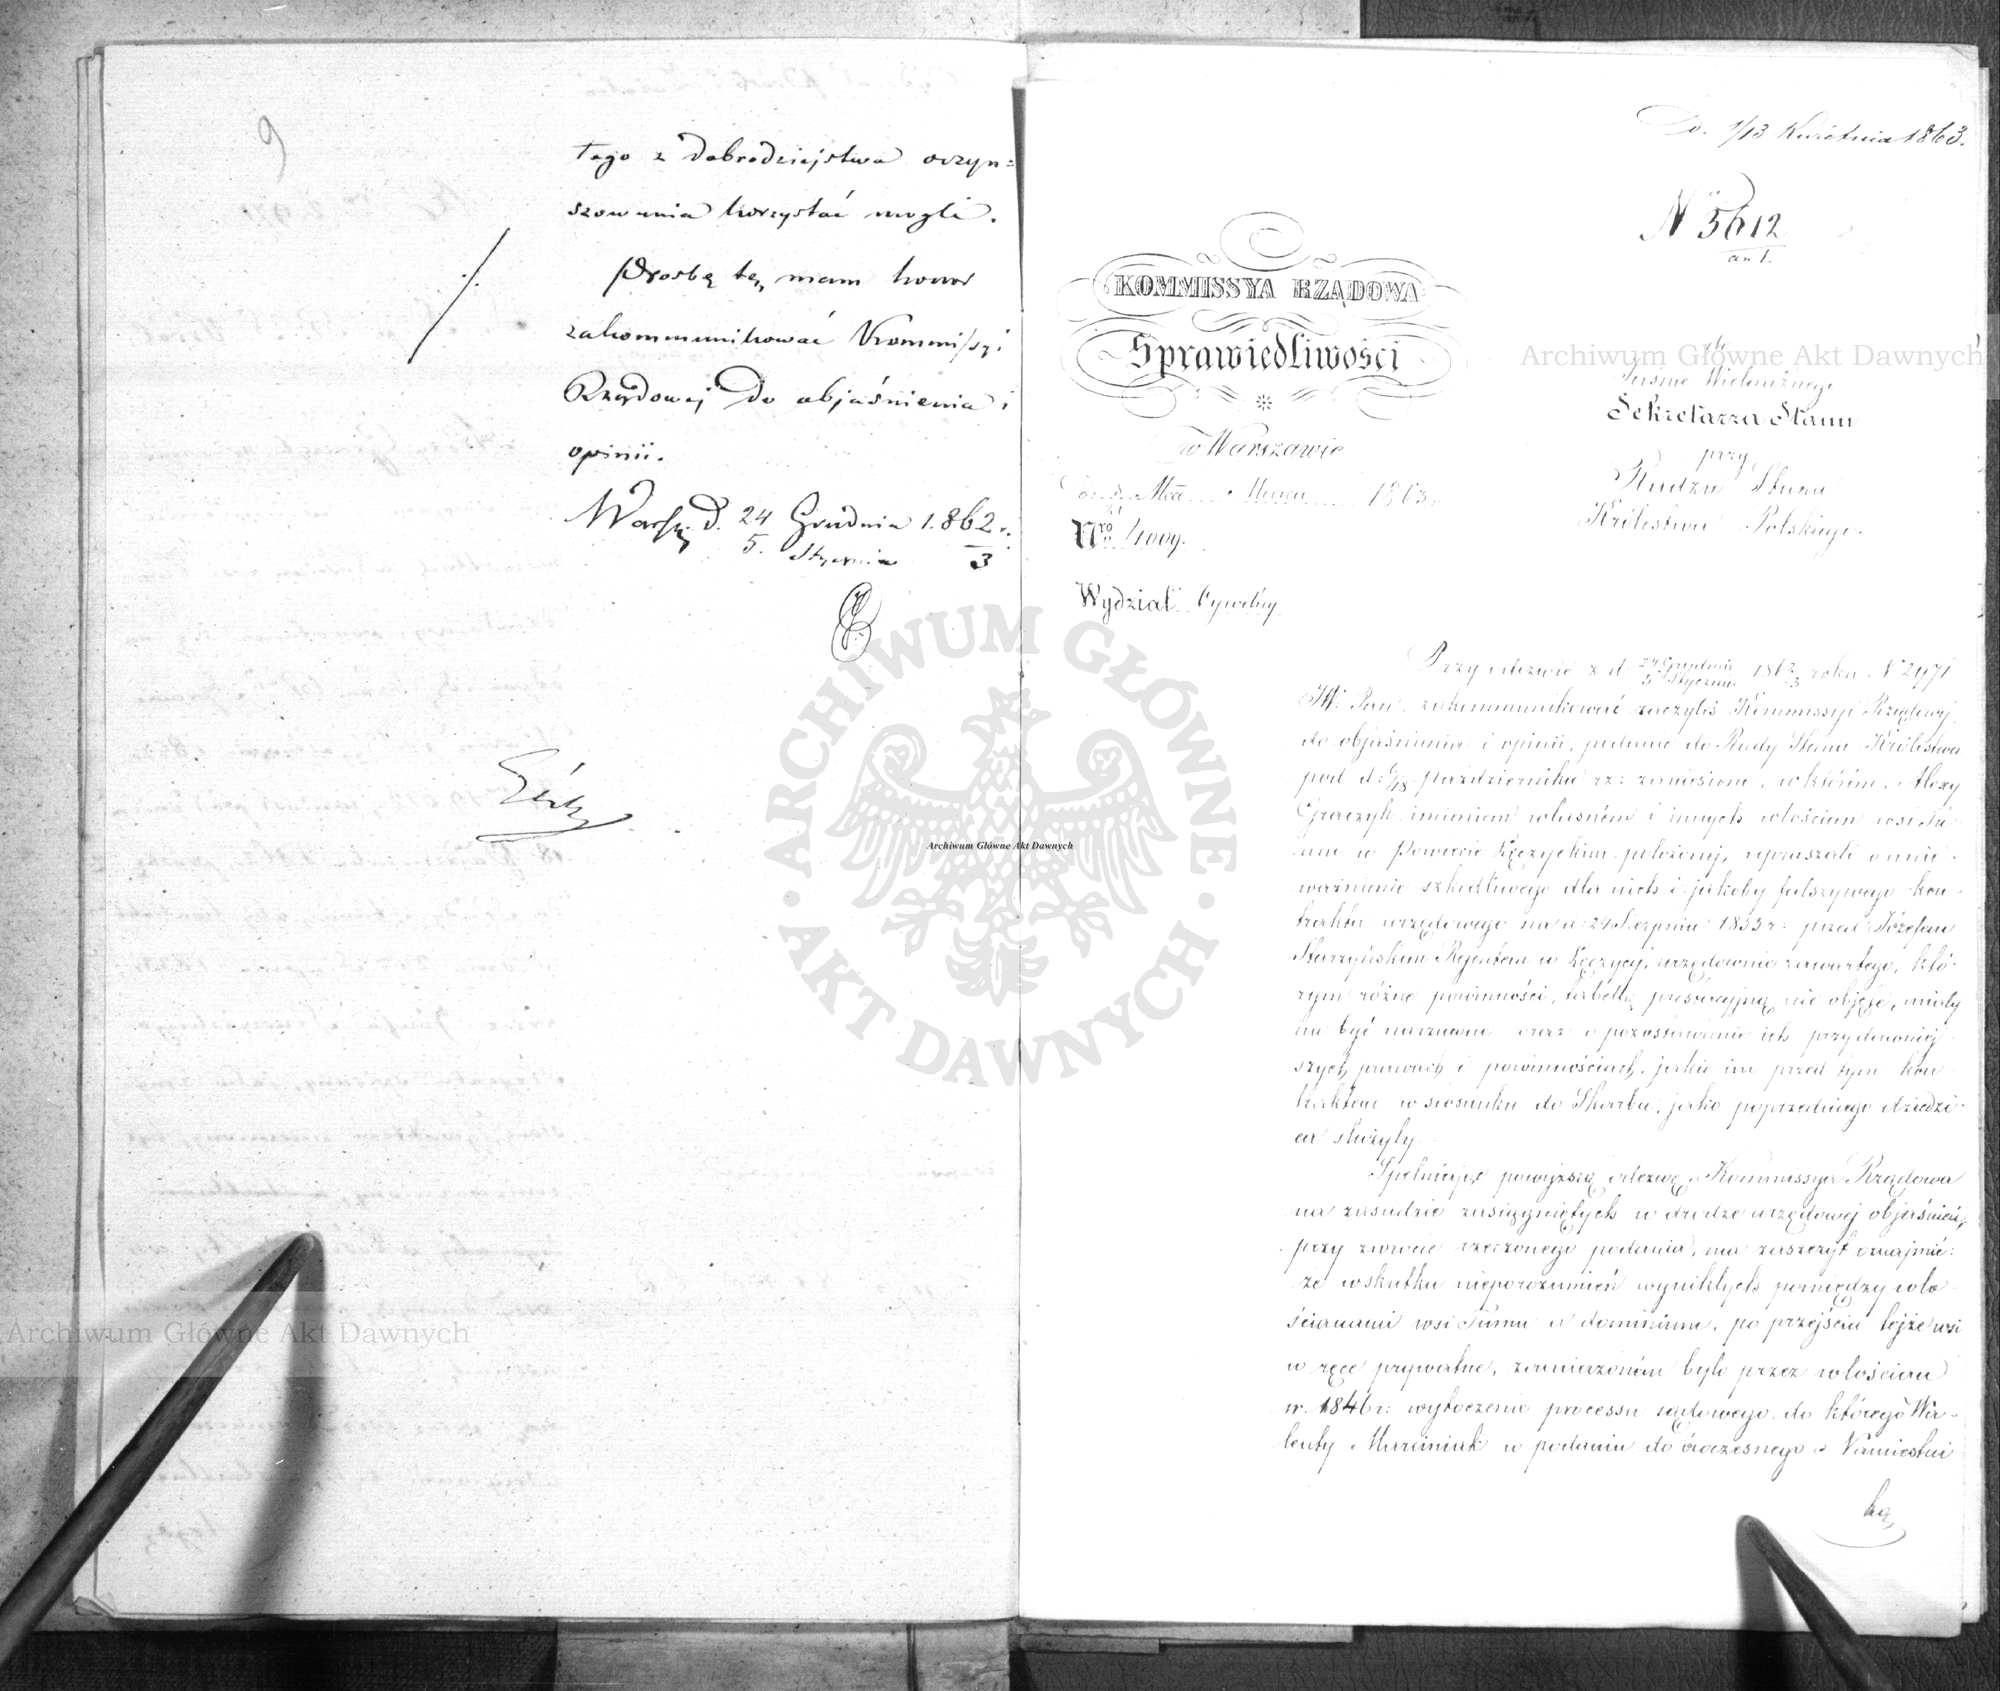 6
tego z dobrodziejstwa oczyn=
szowania korzystać mogli.
Prośbę tę, mam honor
zakommunikować Kommissyi
Rządowej do objaśnienia i
opinii.
Warsz. d. 24 Grudnia 1862 r.
5. Stycznia 3
D. 1/13 Kwietnia 1863.
N 5612
KOMMISSYA RZĄDOWA
Sprawiedliwości
w Warszawie
Marca 1863 r.
Nro 4009.
Wydział Cywilny
do
Jaśnie Wielmożnego
Sekretarza Stanu
przy
Radzie Stanu
Królestwa Polskiego.
Przy odezwie z d. 24 Grudnia / 5 Stycznia 1862/3 roku N 2971
JW. Pan zakommunikować raczyłeś Kommissyi Rządowej
do objaśnienia i opinii, podanie do Rady Stanu Królestwa
pod d: 6/18 października rz: zaniesione, w którém, Alexy
Graczyk imieniem własném i innych włościan wsi Tu-
mu w Powiecie Łęczyckim położonej, upraszali o unie-
ważnienie szkodliwego dla nich i jakoby fałszywego kon-
traktu urzędowego na d: 24 Sierpnia 1833 r: przed Józefem
Starzyńskim Rejentem w Łęczycy, urzędownie zawartego, któ-
rym różne powinności, tabellą prestacyjną nie objęte, miały
im być narzucone oraz o pozostawienie ich przy dawniej-
szych prawach i powinnościach, jakie im przed tym kon-
traktem w stosunku do Skarbu, jako poprzedniego dziedzi-
ca służyły.
Spełniając powyższą odezwę, Kommissya Rządowa
na zasadzie zasiągniętych w drodze urzędowej objaśnień,
przy zwrocie rzeczonego podania, ma zaszczyt oznajmić:
że w skutku nieporozumień wynikłych pomiędzy wło-
ścianami wsi Tumu a dominium, po przejściu tejże wsi
w ręce prywatne, zamierzoném było przez włościan
w 1846 r: wytoczenie processu sądowego, do którego Wa-
lenty Marciniak w podaniu do ówczesnego Namiestni-
ka,
Archiwum Główne Akt Dawnych
ARCHIWUM GŁÓWNE AKT DAWNYCH
Archiwum Główne Akt Dawnych
Archiwum Główne Akt Dawnych